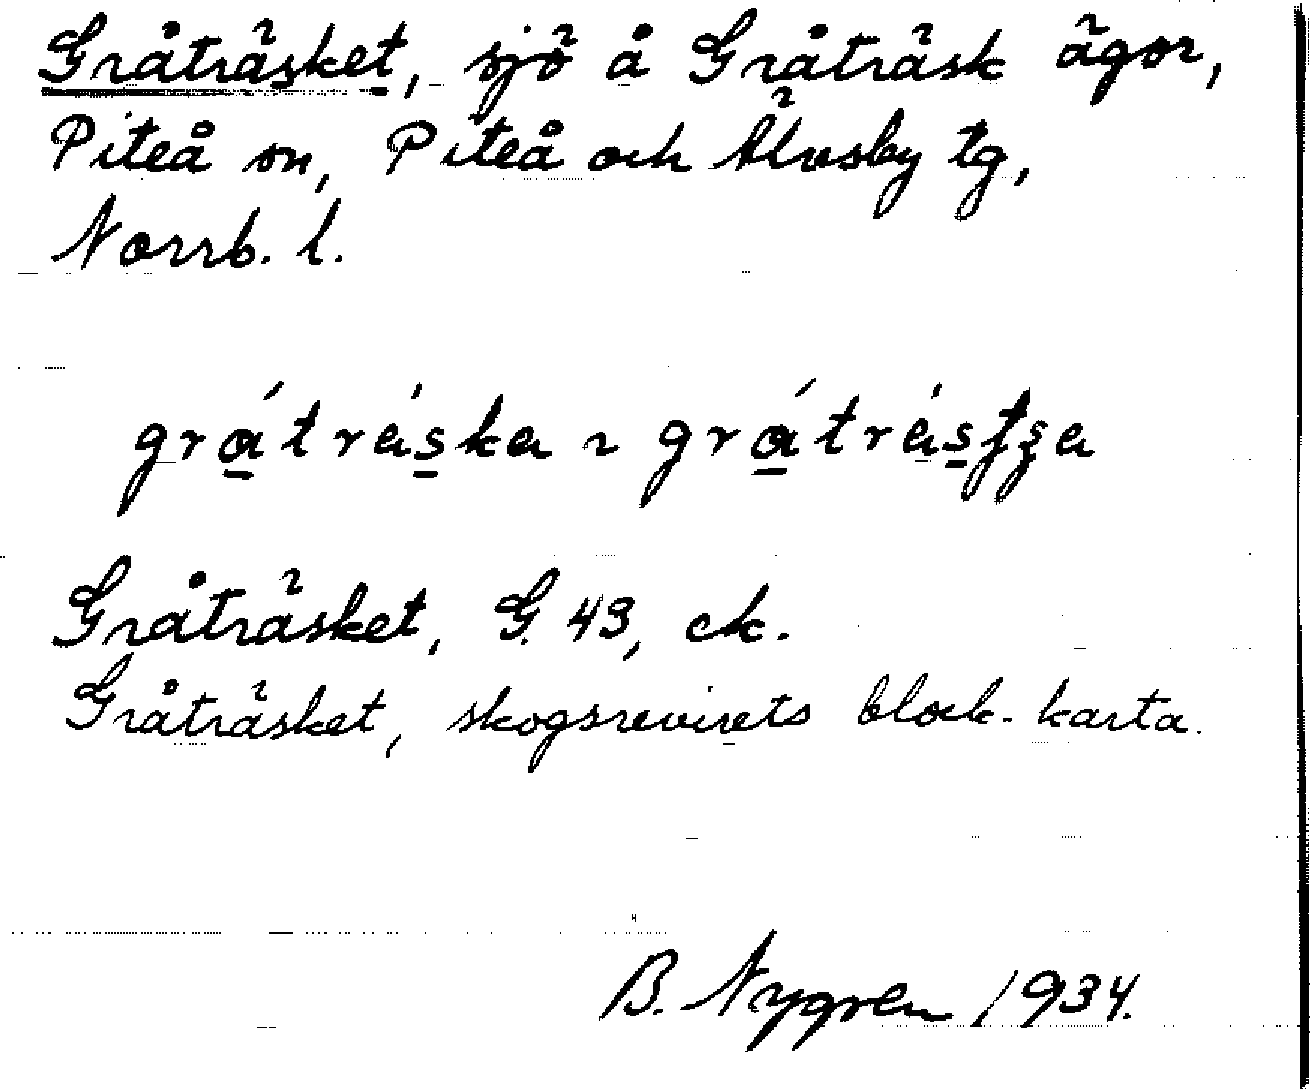 Gråträsket, sjö å Gråträsk ägor,
Piteå sn, Piteå och Älvsby tg,
Norrb. l.
Gråträsket, G. 43, ek.
Gråträsket, skogsrevirets block-karta.
B. Nygren 1934.